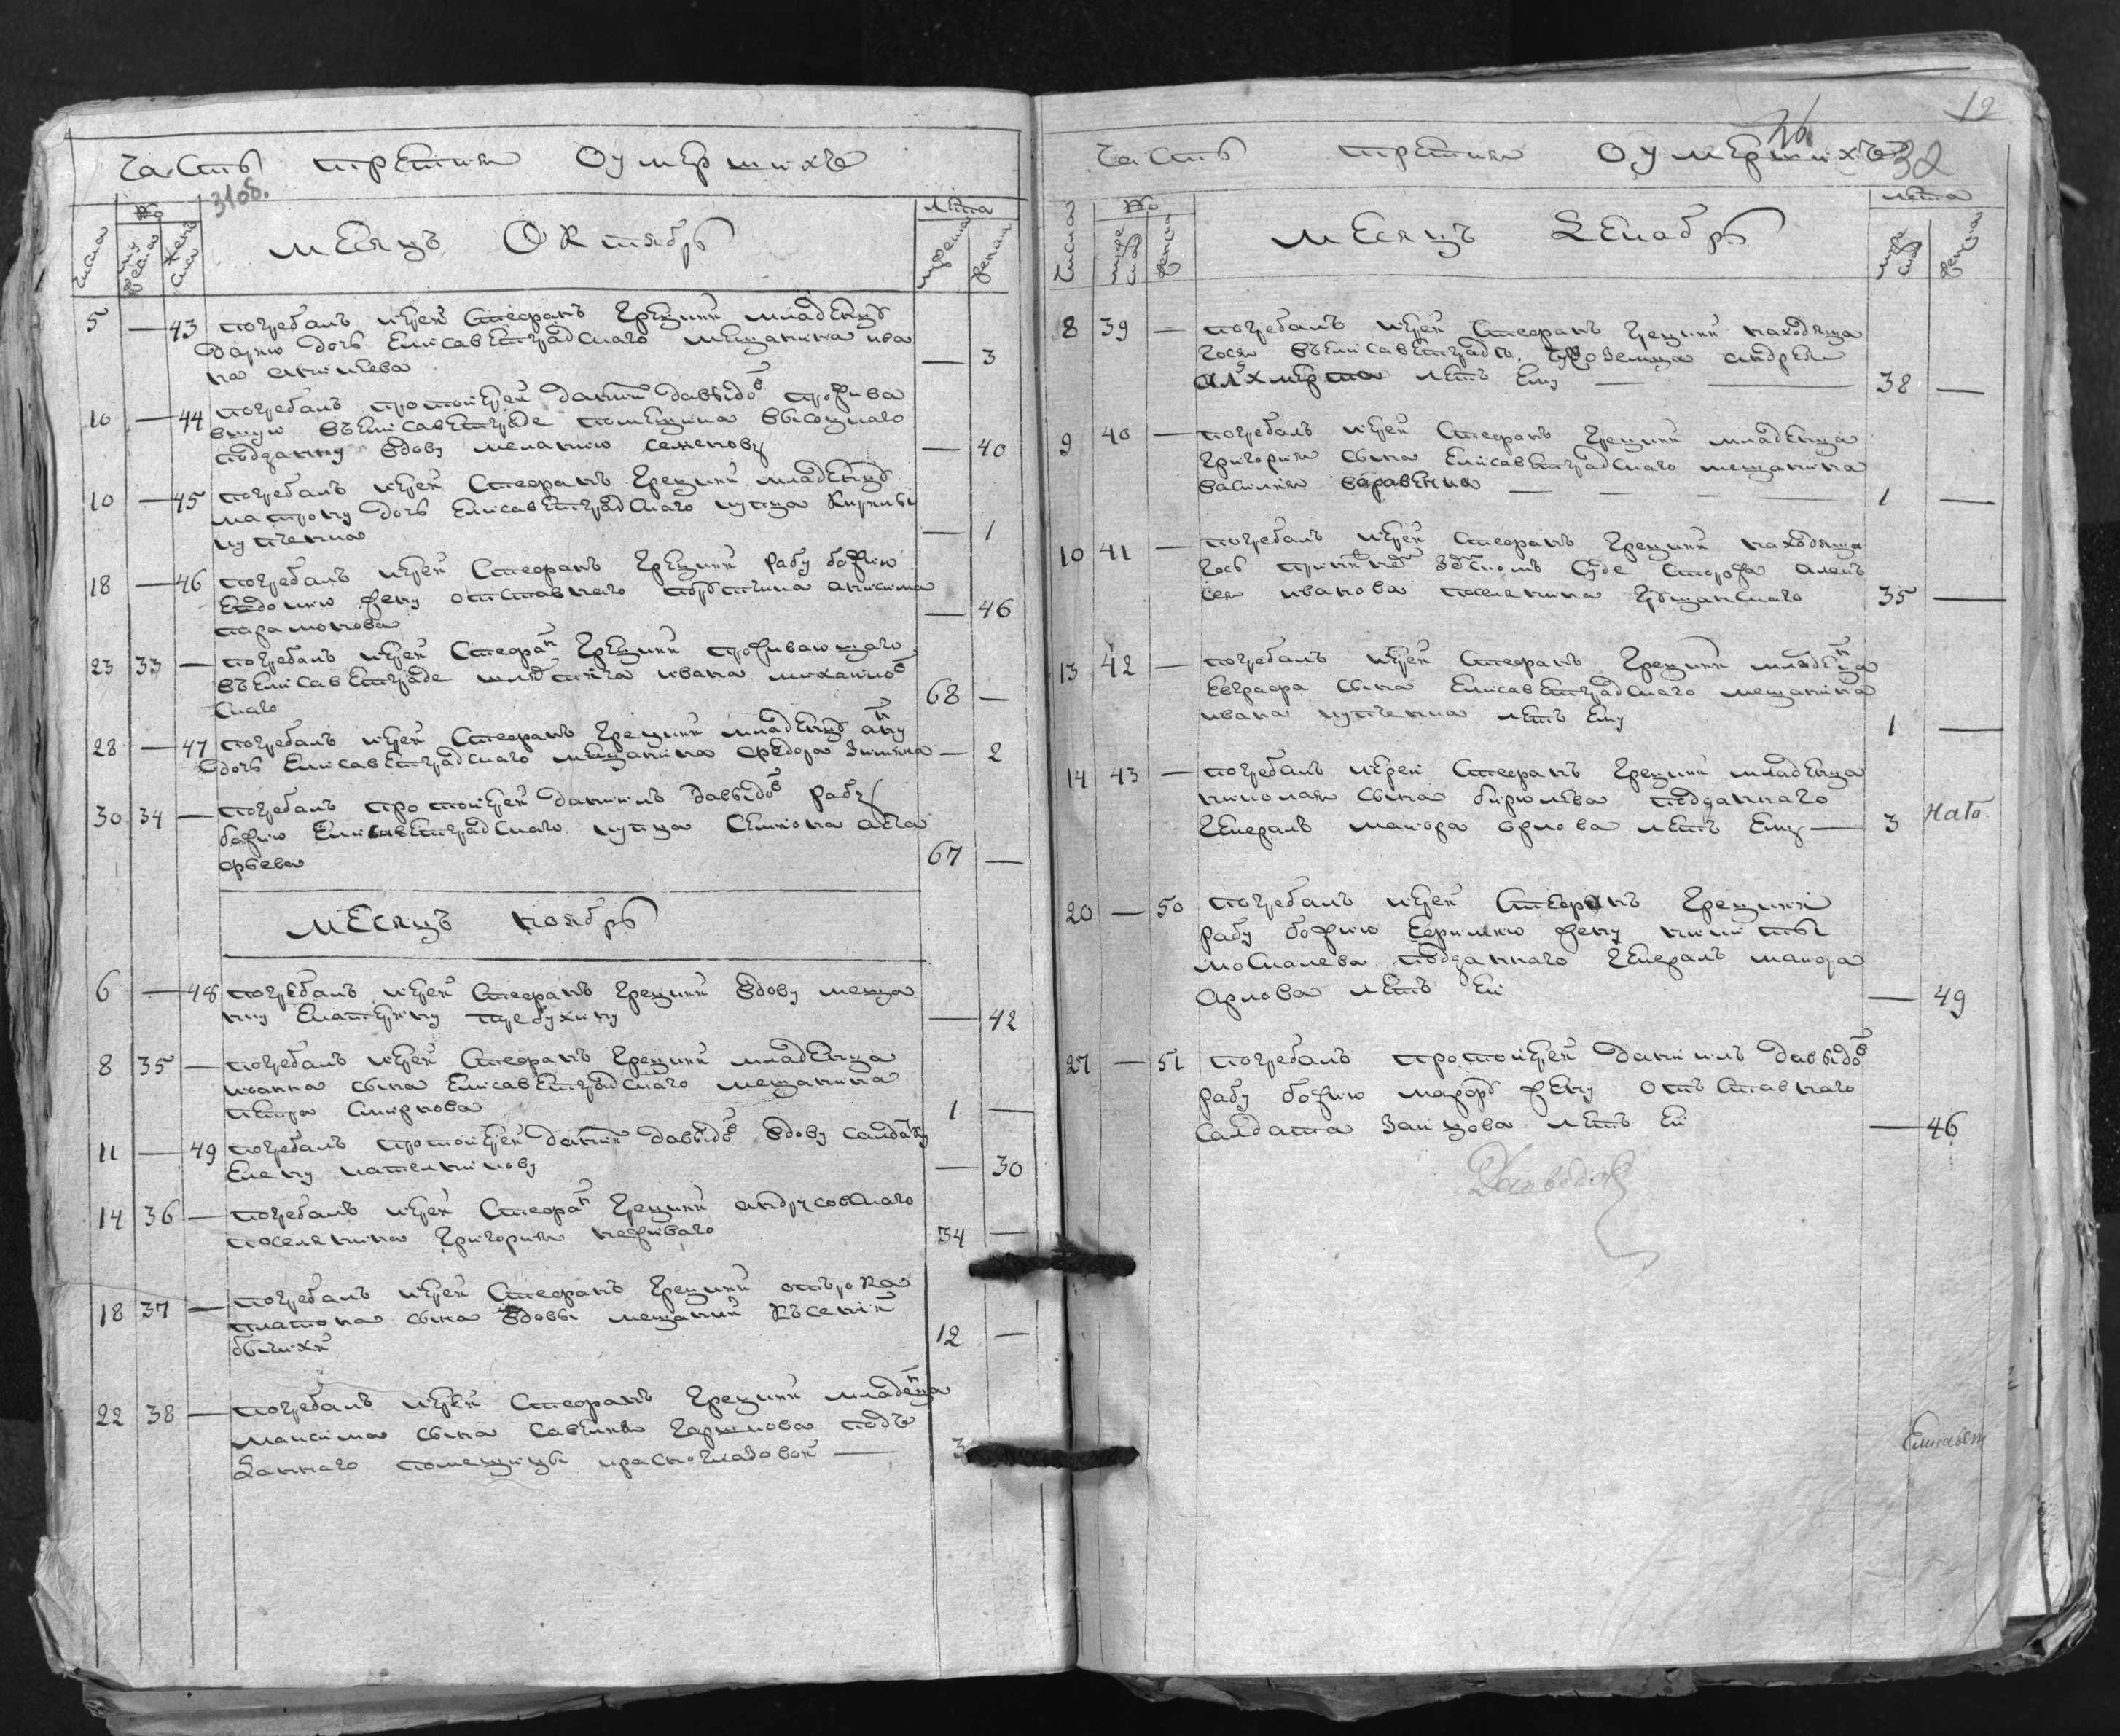 Часть третия оумершихъ
31об.
числа
№
мужеска
женска
лѣта
мужеска
женска
месяцъ Октябрь
5 — 43 погребалъ иерей Стефанъ Грецкий младенцъ
Дарию дочь Елисаветградскаго мещанина ива
на — 3
10 — 44 погребалъ протоиерей Дании Давыдов прожива
вшую въ Елисаветграде помещика Высоцкаго
подданну вдову меланию семенову — 40
10 — 45 погребалъ иерей Стефанъ Грецкий младенцъ
матрону дочь Елисаветградскаго купца Кирилы
путченка — 1
18 — 46 погребалъ иерей Стефанъ Грецкий рабу божию
Евдокию жену отставнаго анисима
парамонова — 46
23 33 — погребалъ иерей Стефан Грецкий проживающаго
въ Елисаветграде шляхтича ивана михаилов
скаго 68 —
28 — 47 погребалъ иерей Стефанъ Грецкий младенцъ анну
дочь Елисаветградскаго мещанина федора — 2
30 34 — погребалъ протоиерей Даниилъ Давыдов раба
божию Елисаветградскаго купца Симиона аста
фьева 67 —
месяцъ ноябрь
6 — 48 погребалъ иерей Стефанъ Грецкий вдову меща
нку Екатерину требухину — 42
8 35 — погребалъ иерей Стефанъ Грецкий младенца
иоанна сына Елисаветградскаго мещанина
петра Смирнова 1 —
11 — 49 погребалъ протоиерей Дании Давыдов вдову салдатку
Елену — 30
14 36 — погребалъ иерей Стефан Грецкий андрусовскаго
поселянина Григория неживаго 34 —
18 37 — погребалъ иерей Стефанъ Грецкий отърока
платона сына вдовы мещанки Ксении
12 —
22 38 — погребалъ иерей Стефанъ Грецкий младенца
максима сына савелия подъ
данного помещицы красноглазовой — 3
12
26
32
Часть третия оумершихъ
числа
№
муже
ска
женска
лѣта
муже
ска
женска
месяцъ Декабрь
8 39 — погребалъ иерей Стефанъ Грецкий находяща
гося въ Елисаветграде, чужоземца андрея
летъ ему — 38 —
9 40 — погребалъ иерей Стефанъ Грецкий младенца
Григория сына Елисаветградскаго мещанина
василия — 1 —
10 41 — погребалъ иерей Стефанъ Грецкий находяща
гось при суде сторожа алек
сея иванова поселянина 35 —
13 42 — погребалъ иерей Стефанъ Грецкий младенца
Евграфа сына Елисаветградскаго мещанина
ивана путченка летъ ему 1 —
14 43 — погребалъ иерей Стефанъ Грецкий младенца
николая сына подданнаго
Генералъ маиора орлова летъ ему — 3
20 — 50 погребалъ иерей Стефанъ Грецкий
рабу божию Ефимию жену никиты
москалева подданнаго Генералъ маиора
Арлова летъ ей — 49
27 — 51 погребалъ протоиерей Даниилъ Давыдов
рабу божию жену отставнаго
салдата Заицова летъ ей — 46
Елисавет